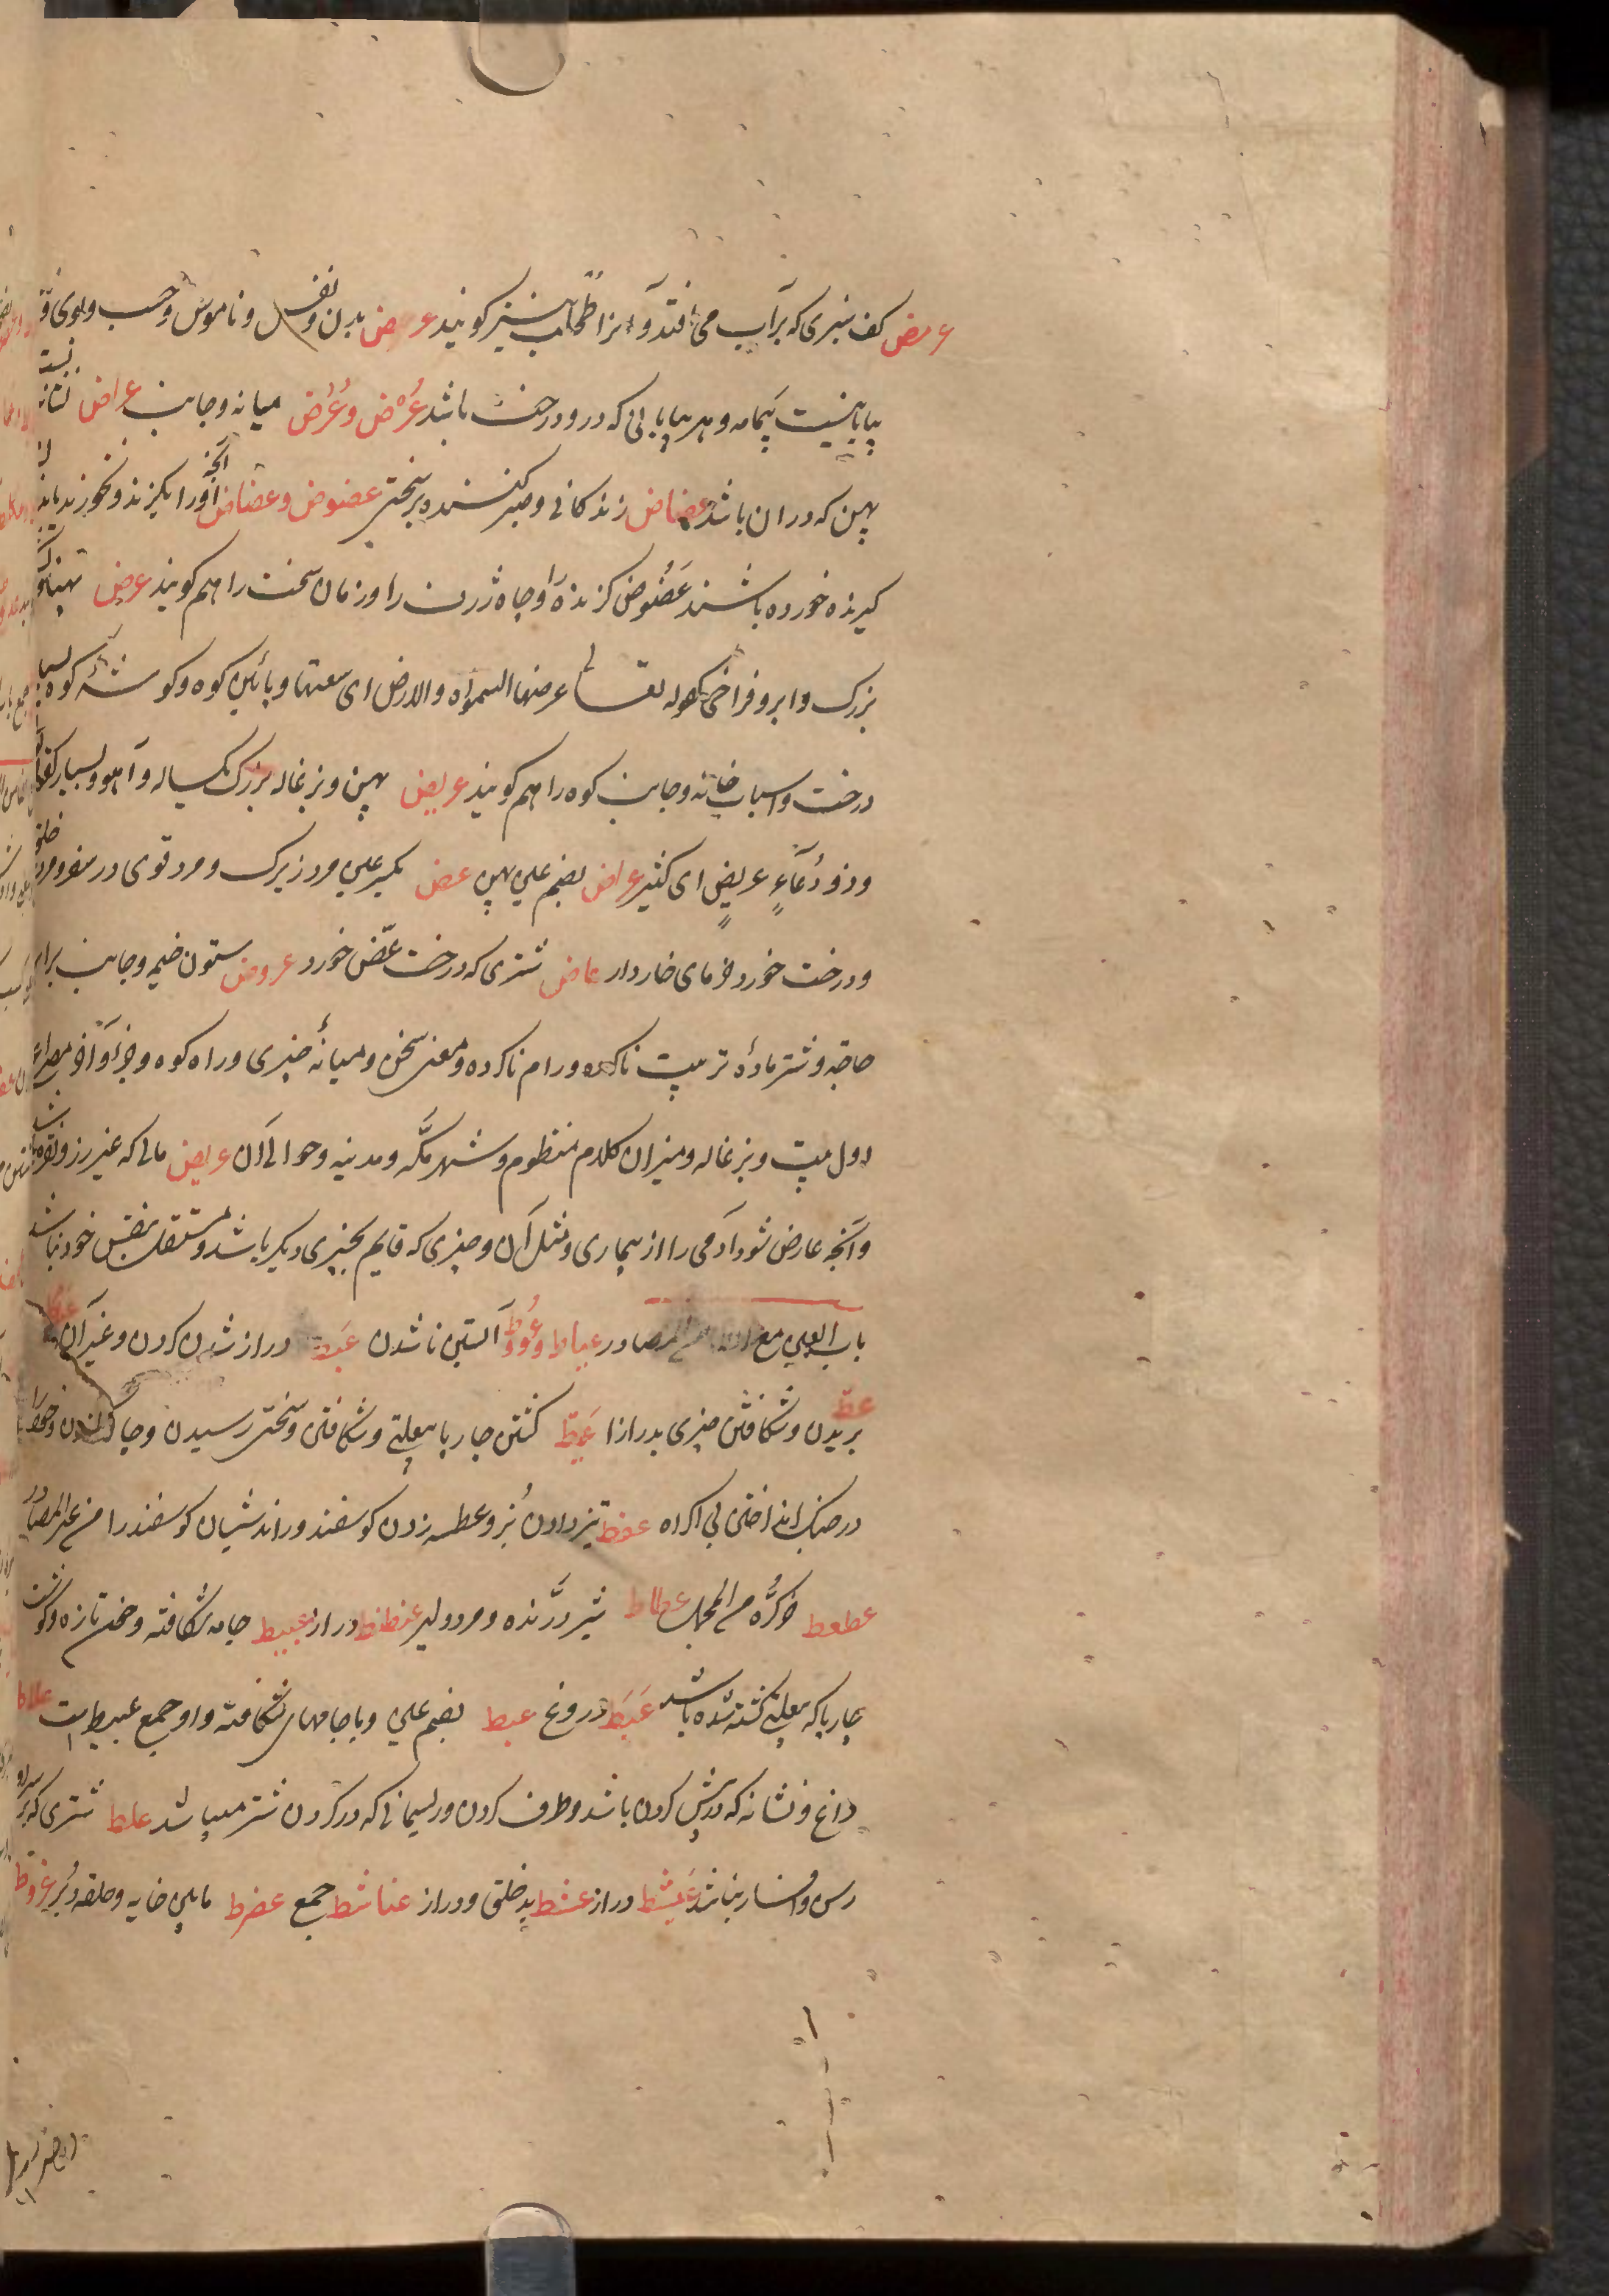 عرمض کف سبزی که بر آب می افتد و آنرا طحلب نیز کویند عرض بدن و نفس و ناموس و حسب و بوی و
بیابانیست بیمامه و هر بیابانی که درو درخت باشد عُرْض و عُرُض میانه و جانب عراض نشانه
پهن که در ران باشد عضاض زندکانی و صبر کننده بر سختی عضوض و عضاض آنچه او را بکزند و بخورند
کیرنده خورده باشند عَضُوض کزنده را و چاه ژرف را و زمان سخت را هم کویند عرض پهنا و
بزرک و ابر و فراخی کقوله تعالی عرضها السموات والارض ای سعتها و پائین کوه و کوشهٔ کوه
درخت و اسباب خانه و جانب کوه را هم کویند عریض پهن و بزغاله بزرک یکساله و آهو و بسیار کقوله
و ذو دُعَآءٍ عریضٍ ای کثیر عراض بضم عین پهن عض بکسر عین مرد زیرک و مرد قوی در سفر و مرد
و درخت خورد خرمای خاردار عاض شتری که درخت عُضّ خورد عروض ستون خیمه و جانب برابر
حاجة و شتر مادهٔ تربیت ناکرده و رام ناکرده و معنی سخن و میانهٔ چیزی و راه کوه و جزو آخر مصراع
اول بیت و بزغاله و میزان کلام منظوم و شهر مکّه و مدینه و حوالی آن عرض مالی که غیر زر و نقره باشد
و آنچه عارض شود آدمی را از بیماری و مثل آن و چیزی که قایم بچیزی دیکر باشد و مستقل بنفس خود نباشد
باب العین مع الطاء من المصادر عیاط و عُوط آبستن ناشدن عَیَط دراز شدن کردن و غیر آن عبط
عط بریدن و شکافتن چیزی بدرازا عَبط کشتن چارپا بی علتی و شکافتن و سختی رسیدن و خود را
در جنک انداختن بی اکراه عفط تیز دادن بُز و عطسه زدن کوسفند و راندن شبان کوسفند را من غیر المصادر
عطعط خرکُرّه من المجمل عطاط شیر درّنده و مرد دلیر عنطنط دراز عبیط جامه شکافته و خون تازه و کوشت
چارپا که بی علت کشته شده باشد عَبَط دروغ عبط بضم عین و با جامهای شکافته و او جمع عبیط است علاط
داغ و نشانه که در پیش کردن باشد و طرف کردن و ریسمانی که در کردن شتر میباشد علط شتری که بر سر او
رسن و افسار نباشد عَشنّط دراز عنشط بدخلق و دراز عناشط جمع عضرط مابین خایه و حلقه دُبر عروط